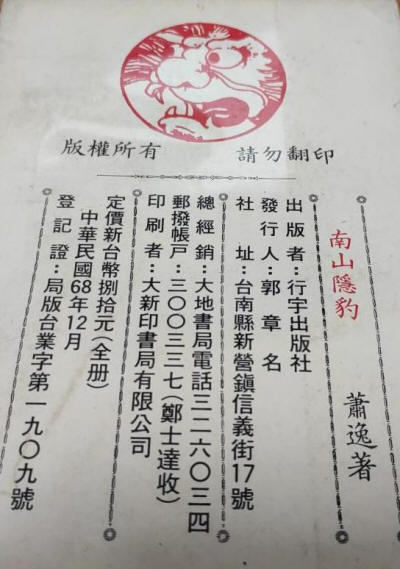 版權所有
請勿翻印
南山隱豹
蕭逸著
出版者：行宇出版社
發行人：郭章名
社址：台南縣新營鎮信義街17號
總經銷：大地書局電話三二六〇三四
郵撥帳戶：三〇〇三三七(鄭士達收)
印刷者：大新印書局有限公司
定價新台幣捌拾元(全册)
中華民國68年12月
登記證：局版台業字第一九〇九號